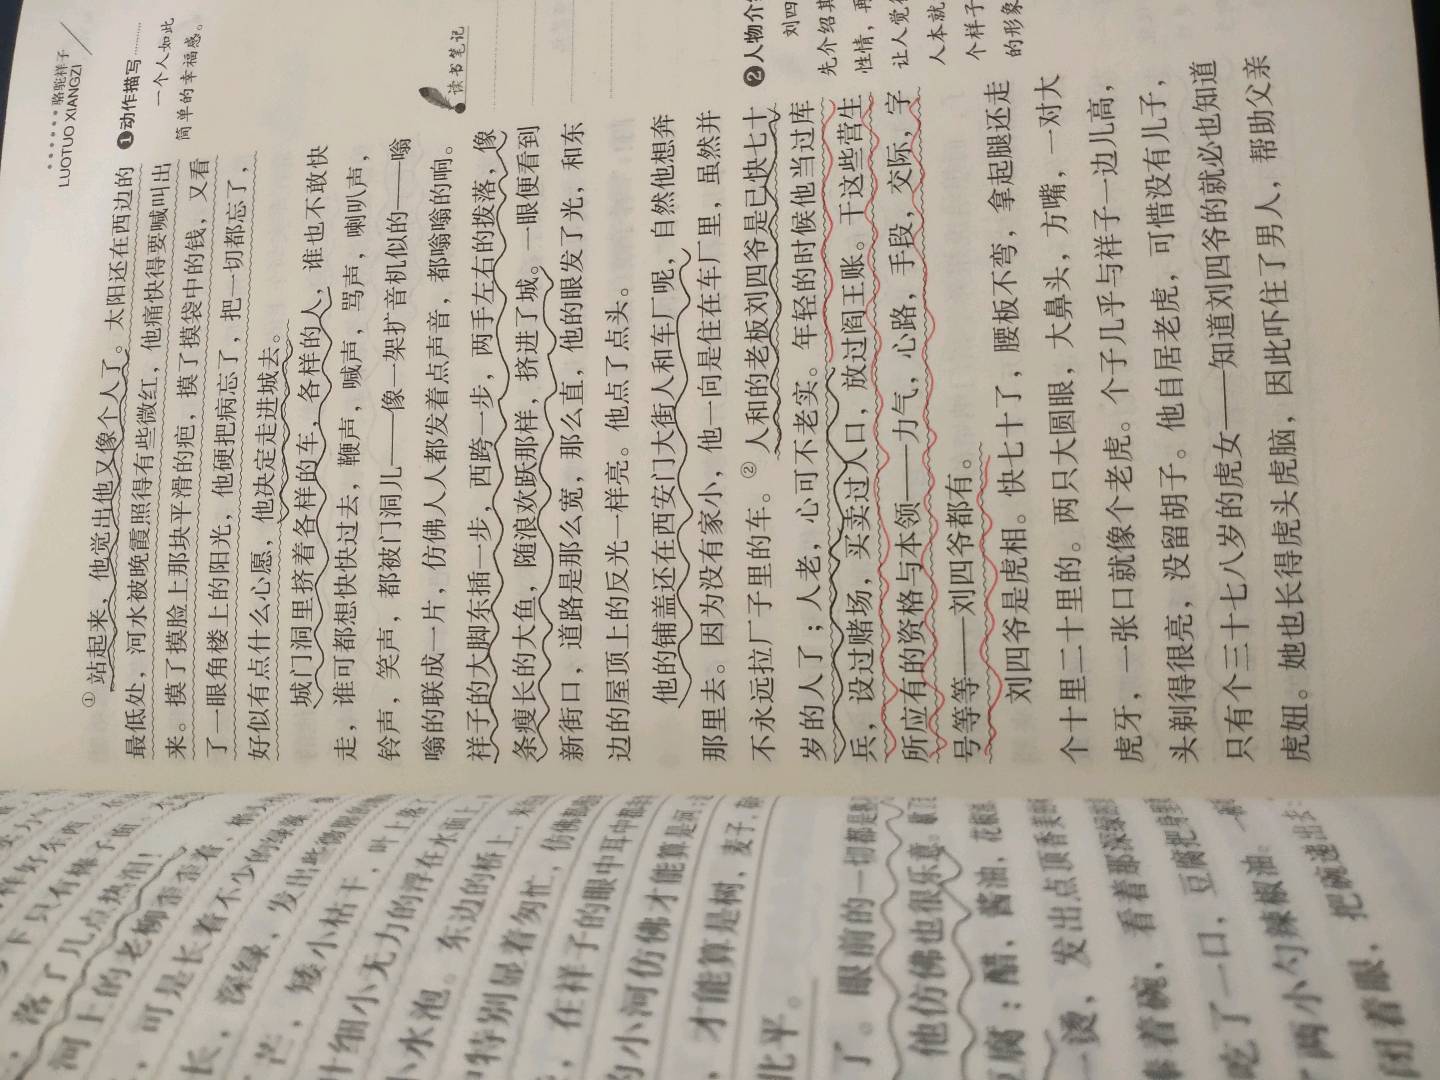 骆驼祥子
LUOTUO XIANGZI
①站起来，他觉出他又像个人了。太阳还在西边的
最低处，河水被晚霞照得有些微红，他痛快得要喊叫出
来。摸了摸脸上那块平滑的疤，摸了摸袋中的钱，又看
了一眼角楼上的阳光，他硬把病忘了，把一切都忘了，
好似有点什么心愿，他决定走进城去。
城门洞里挤着各样的车，各样的人，谁也不敢快
走，谁可都想快快过去，鞭声，喊声，骂声，喇叭声，
铃声，笑声，都被门洞儿——像一架扩音机似的——嗡
嗡的联成一片，仿佛人人都发着点声音，都嗡嗡的响。
祥子的大脚东插一步，西跨一步，两手左右的拨落，像
条瘦长的大鱼，随浪欢跃那样，挤进了城。一眼便看到
新街口，道路是那么宽，那么直，他的眼发了光，和东
边的屋顶上的反光一样亮。他点了点头。
他的铺盖还在西安门大街人和车厂呢，自然他想奔
那里去。因为没有家小，他一向是住在车厂里，虽然并
不永远拉厂子里的车。②人和的老板刘四爷是已快七十
岁的人了；人老，心可不老实。年轻的时候他当过库
兵，设过赌场，买卖过人口，放过阎王账。干这些营生
所应有的资格与本领——力气，心路，手段，交际，字
号等等——刘四爷都有。
刘四爷是虎相。快七十了，腰板不弯，拿起腿还走
个十里二十里的。两只大圆眼，大鼻头，方嘴，一对大
虎牙，一张口就像个老虎。个子几乎与祥子一边儿高，
头剃得很亮，没留胡子。他自居老虎，可惜没有儿子，
只有个三十七八岁的虎女——知道刘四爷的就必也知道
虎妞。她也长得虎头虎脑，因此吓住了男人，帮助父亲
❶动作描写
一个人如此
简单的幸福感。
读书笔记
❷人物介绍
刘四
先介绍其
性情，再
让人觉得
人本就
个样子
的形象
落了几点热泪！
河上的老柳歪歪着，梢
，可是长着不少的绿藻，
长，深绿，发出些微腥
芒，矮小枯干，叶上落
叶细小无力的浮在水面上，
小水泡。东边的桥上，来
中特别显着匆忙，仿佛都
，在祥子的眼中耳中都
的小河仿佛才能算是河；
，才能算是树，麦子，
北平。
了。眼前的一切都是
他仿佛也很乐意。
豆腐：醋，酱油，花椒
烫，发出点顶香美
捧着碗，看着那深绿
吃了一口，豆腐把身里
了两小勺辣椒油。
闭着眼，把碗递出去